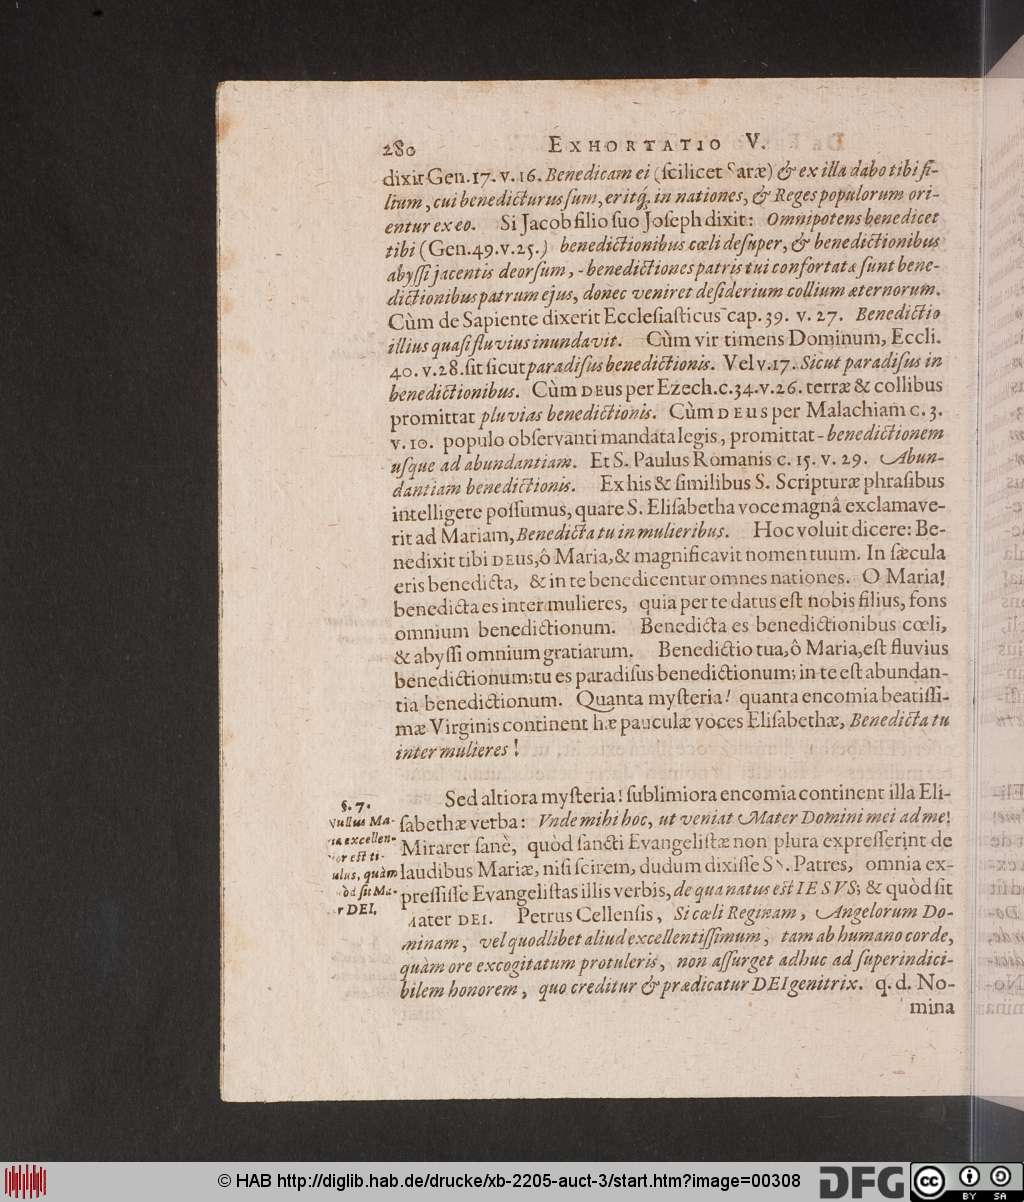 280 EXHORTATIO V.
dixit Gen. 17. v. 16. Benedicam ei (ſcilicet Saræ) & ex illa dabo tibi fi-
lium, cui benedicturus ſum, eritq́; in nationes, & Reges populorum ori-
entur ex eo. Si Jacob filio ſuo Joſeph dixit: Omnipotens benedicet
tibi (Gen. 49. v. 25.) benedictionibus cœli deſuper, & benedictionibus
abyſſi jacentis deorſum, - benedictiones patris tui confortatæ ſunt bene-
dictionibus patrum ejus, donec veniret deſiderium collium æternorum.
Cùm de Sapiente dixerit Eccleſiaſticus cap. 39. v. 27. Benedictio
illius quaſi fluvius inundavit. Cùm vir timens Dominum, Eccli.
40. v. 28. ſit ſicut paradiſus benedictionis. Vel v. 17. Sicut paradiſus in
benedictionibus. Cùm DEus per Ezech. c. 34. v. 26. terræ & collibus
promittat pluvias benedictionis. Cùm DEus per Malachiam c. 3.
v. 10. populo obſervanti mandata legis, promittat - benedictionem
uſque ad abundantiam. Et S. Paulus Romanis c. 15. v. 29. Abun-
dantiam benedictionis. Ex his & ſimilibus S. Scripturæ phraſibus
intelligere poſſumus, quare S. Eliſabetha voce magnâ exclamave-
rit ad Mariam, Benedicta tu in mulieribus. Hoc voluit dicere: Be-
nedixit tibi DEus, ô Maria, & magnificavit nomen tuum. In ſæcula
eris benedicta, & in te benedicentur omnes nationes. O Maria!
benedicta es inter mulieres, quia per te datus eſt nobis filius, fons
omnium benedictionum. Benedicta es benedictionibus cœli,
& abyſſi omnium gratiarum. Benedictio tua, ô Maria, eſt fluvius
benedictionum; tu es paradiſus benedictionum; in te eſt abundan-
tia benedictionum. Quanta myſteria! quanta encomia beatiſſi-
mæ Virginis continent hæ pauculæ voces Eliſabethæ, Benedicta tu
inter mulieres!
Sed altiora myſteria! ſublimiora encomia continent illa Eli-
ſabethæ verba: Vnde mihi hoc, ut veniat Mater Domini mei ad me!
Mirarer ſanè, quòd ſancti Evangeliſtæ non plura expreſſerint de
laudibus Mariæ, niſi ſcirem, dudum dixiſſe SS. Patres, omnia ex-
preſſiſſe Evangeliſtas illis verbis, de qua natus eſt IESVS; & quòd ſit
Mater DEI. Petrus Cellenſis, Si cœli Reginam, Angelorum Do-
minam, vel quodlibet aliud excellentiſſimum, tam ab humano corde,
quàm ore excogitatum protuleris, non aſſurget adhuc ad ſuperindici-
bilem honorem, quo creditur & prædicatur DEI genitrix. q. d. No-
mina
§. 7.
Nullus Ma-
riæ excellen-
tior eſt ti-
tulus, quàm
quòd ſit Ma-
ter DEI.
© HAB http://diglib.hab.de/drucke/xb-2205-auct-3/start.htm?image=00308
DFG
cc
BY SA